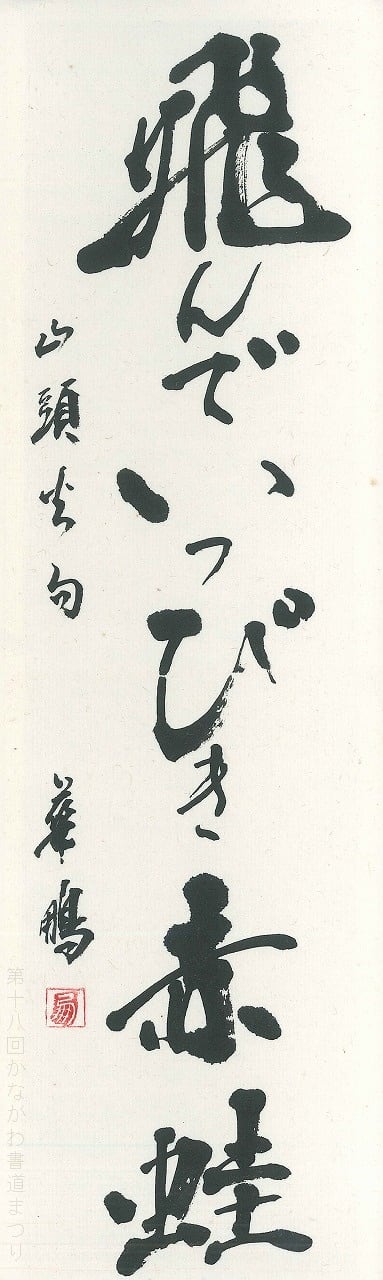 飛んでいっぴき赤蛙
山頭火句 華鵬
第十八回かながわ書道まつり